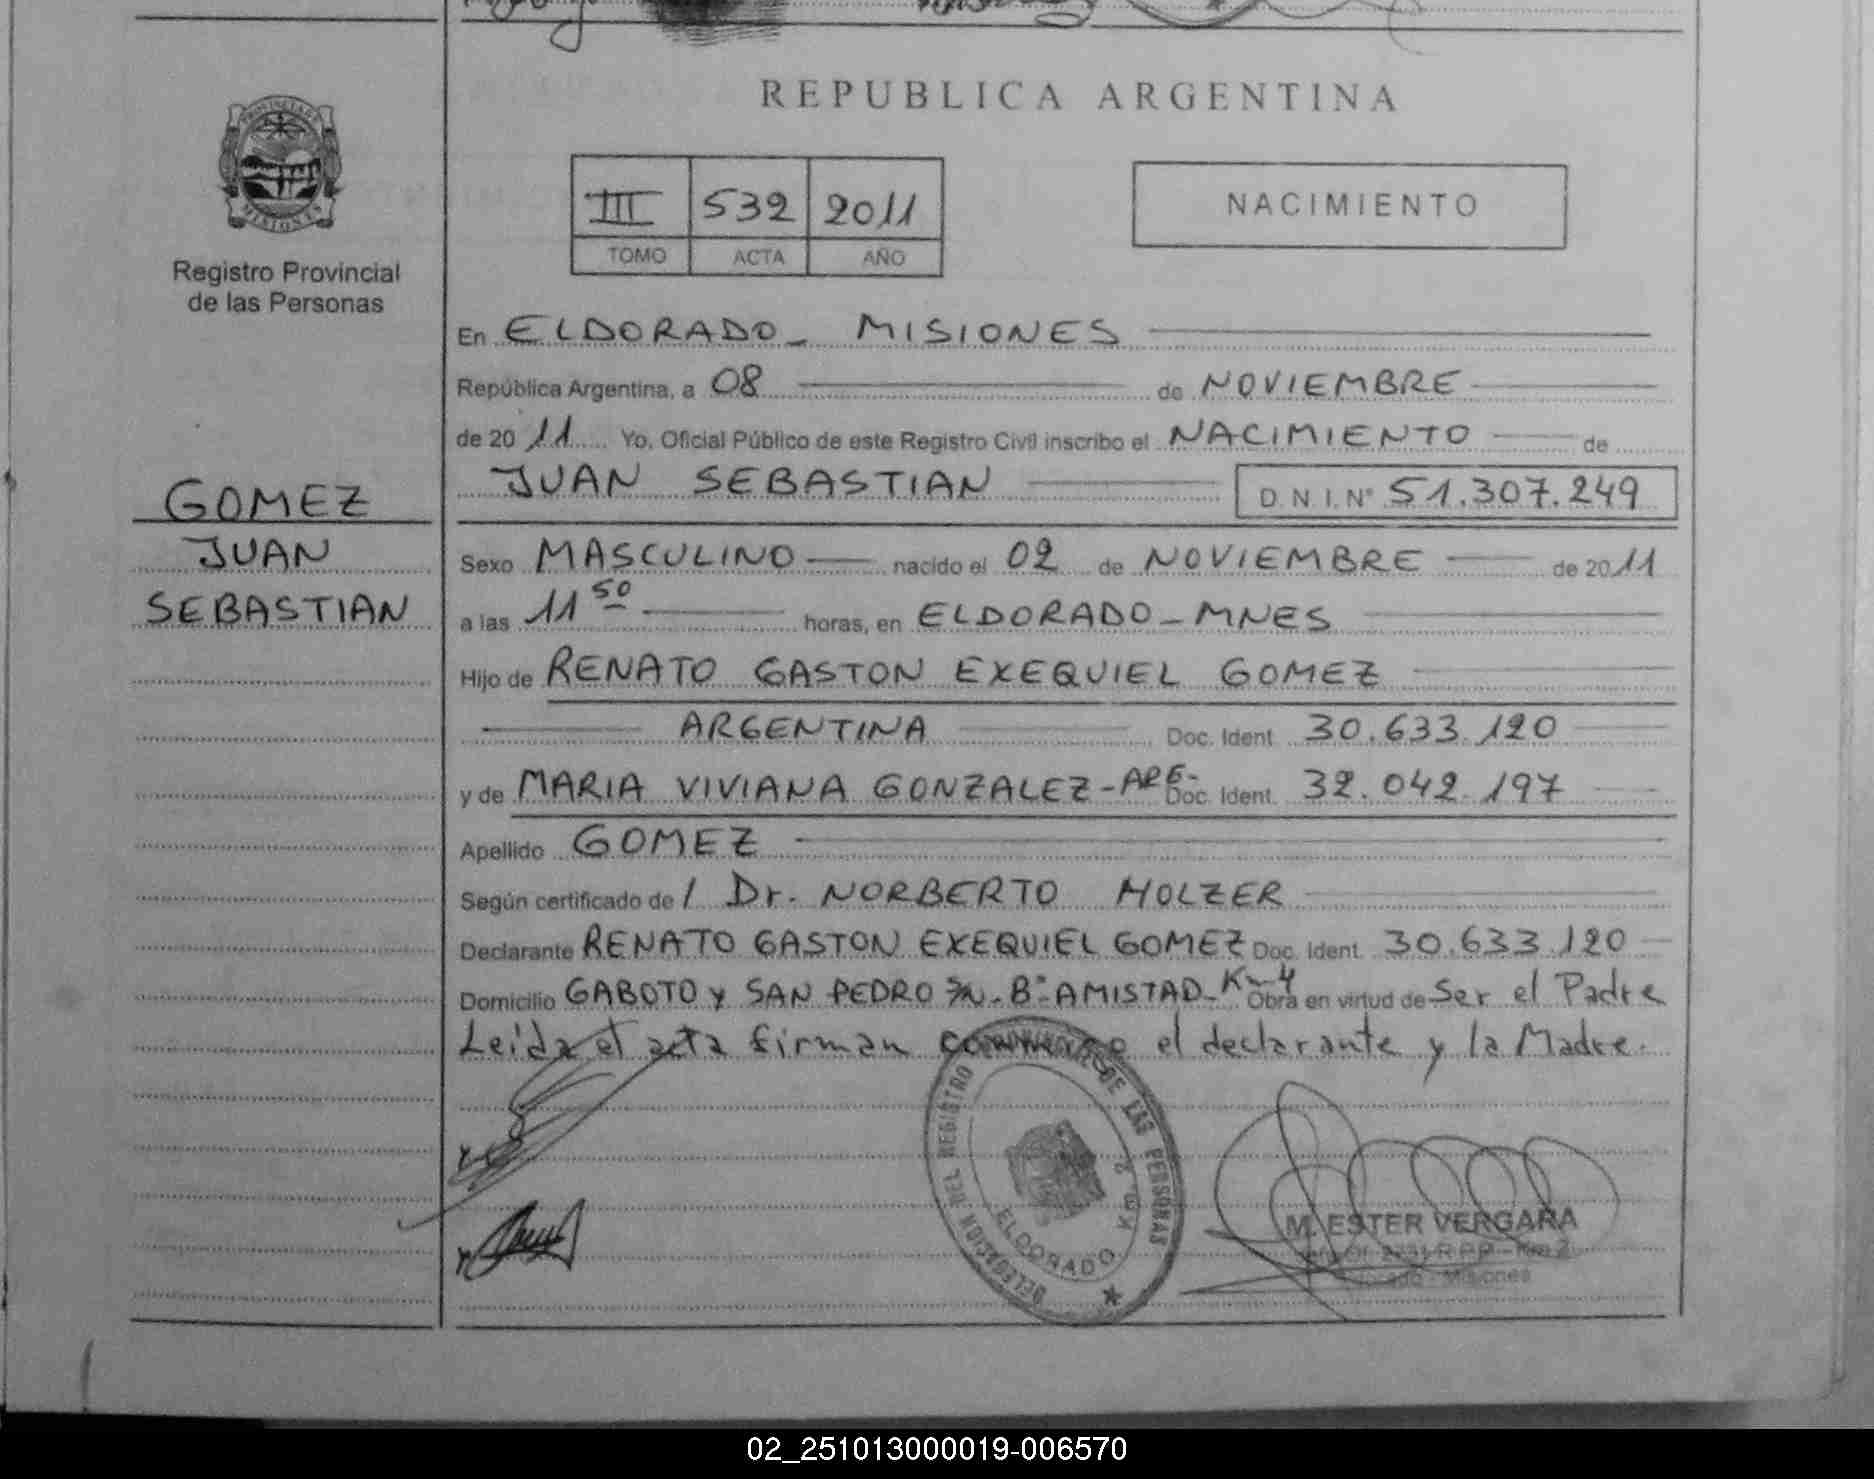 REPUBLICA ARGENTINA
PROVINCIA DE
MISIONES
Registro Provincial
de las Personas
III 532 2011
TOMO ACTA AÑO
NACIMIENTO
En ELDORADO_ MISIONES
República Argentina, a 08 de NOVIEMBRE
de 20 11 Yo, Oficial Público de este Registro Civil inscribo el NACIMIENTO de
JUAN SEBASTIAN D.N.I.N° 51.307.249
GOMEZ
JUAN
SEBASTIAN
Sexo MASCULINO nacido el 02 de NOVIEMBRE de 2011
a las 11 50 horas, en ELDORADO_MNES
Hijo de RENATO GASTON EXEQUIEL GOMEZ
ARGENTINA Doc. Ident. 30.633.120
y de MARIA VIVIANA GONZALEZ-ARG- Doc. Ident. 32.042.197
Apellido GOMEZ
Según certificado de / Dr. NORBERTO HOLZER
Declarante RENATO GASTON EXEQUIEL GOMEZ Doc. Ident. 30.633.120
Domicilio GABOTO y SAN PEDRO S/N-B°-AMISTAD-Km4 Obra en virtud de Ser el Padre
Leída el acta firman conmigo el declarante y la Madre.
DELEGACION DEL REGISTRO DE LAS PERSONAS
ELDORADO Km 2
M. ESTER VERGARA
R.P.P - Km 2
Eldorado - Misiones
02_251013000019-006570